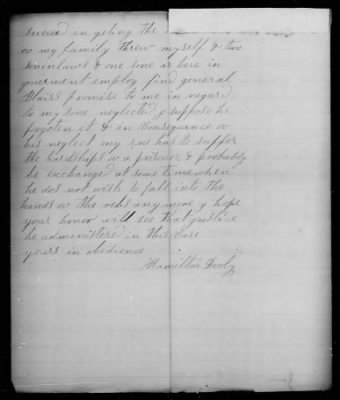 in geting the
or my family threw myself & two
soninlaws & one sone is here in
goverment employ find general
Blairs promise to me in regard
to my sone neglected y suppose he
forgoten it & in consequence ov
his neglect my sone has to suffer
the hardships ov a prisoner & probably
be exchange at some time when
he dos not wish to fall into the
hands ov the rebs any more y hope
your honor will see that justice
be administered in this case
yours in obedience
Hamilton Dooly